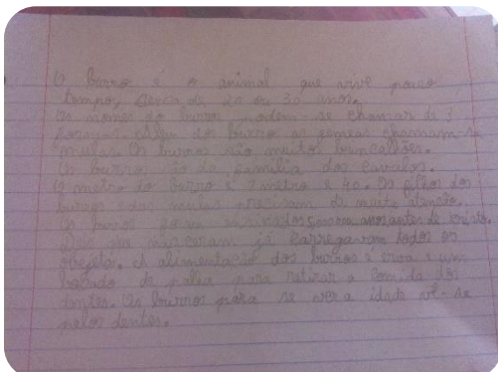 O burro é o animal que vive pouco
tempo, cerca de 20 ou 30 anos.
os nomes do burro podem-se chamar de 3
formas, além dos burro as femeas chamam-se
mulas. Os burros são muito brincalhões.
Os burros são da familia dos cavalos.
O metro do burro é 1 metro e 40. Os filhos dos
burros e das mulas precisam de muita atenção.
Os burros foram anos antes de cristo.
já carregavam todos os
objetos. A alimentação dos burros é erva e um
bocado de palha para retirar a comida dos
dentes. Os burros para se ver a idade vê-se
pelos dentes.